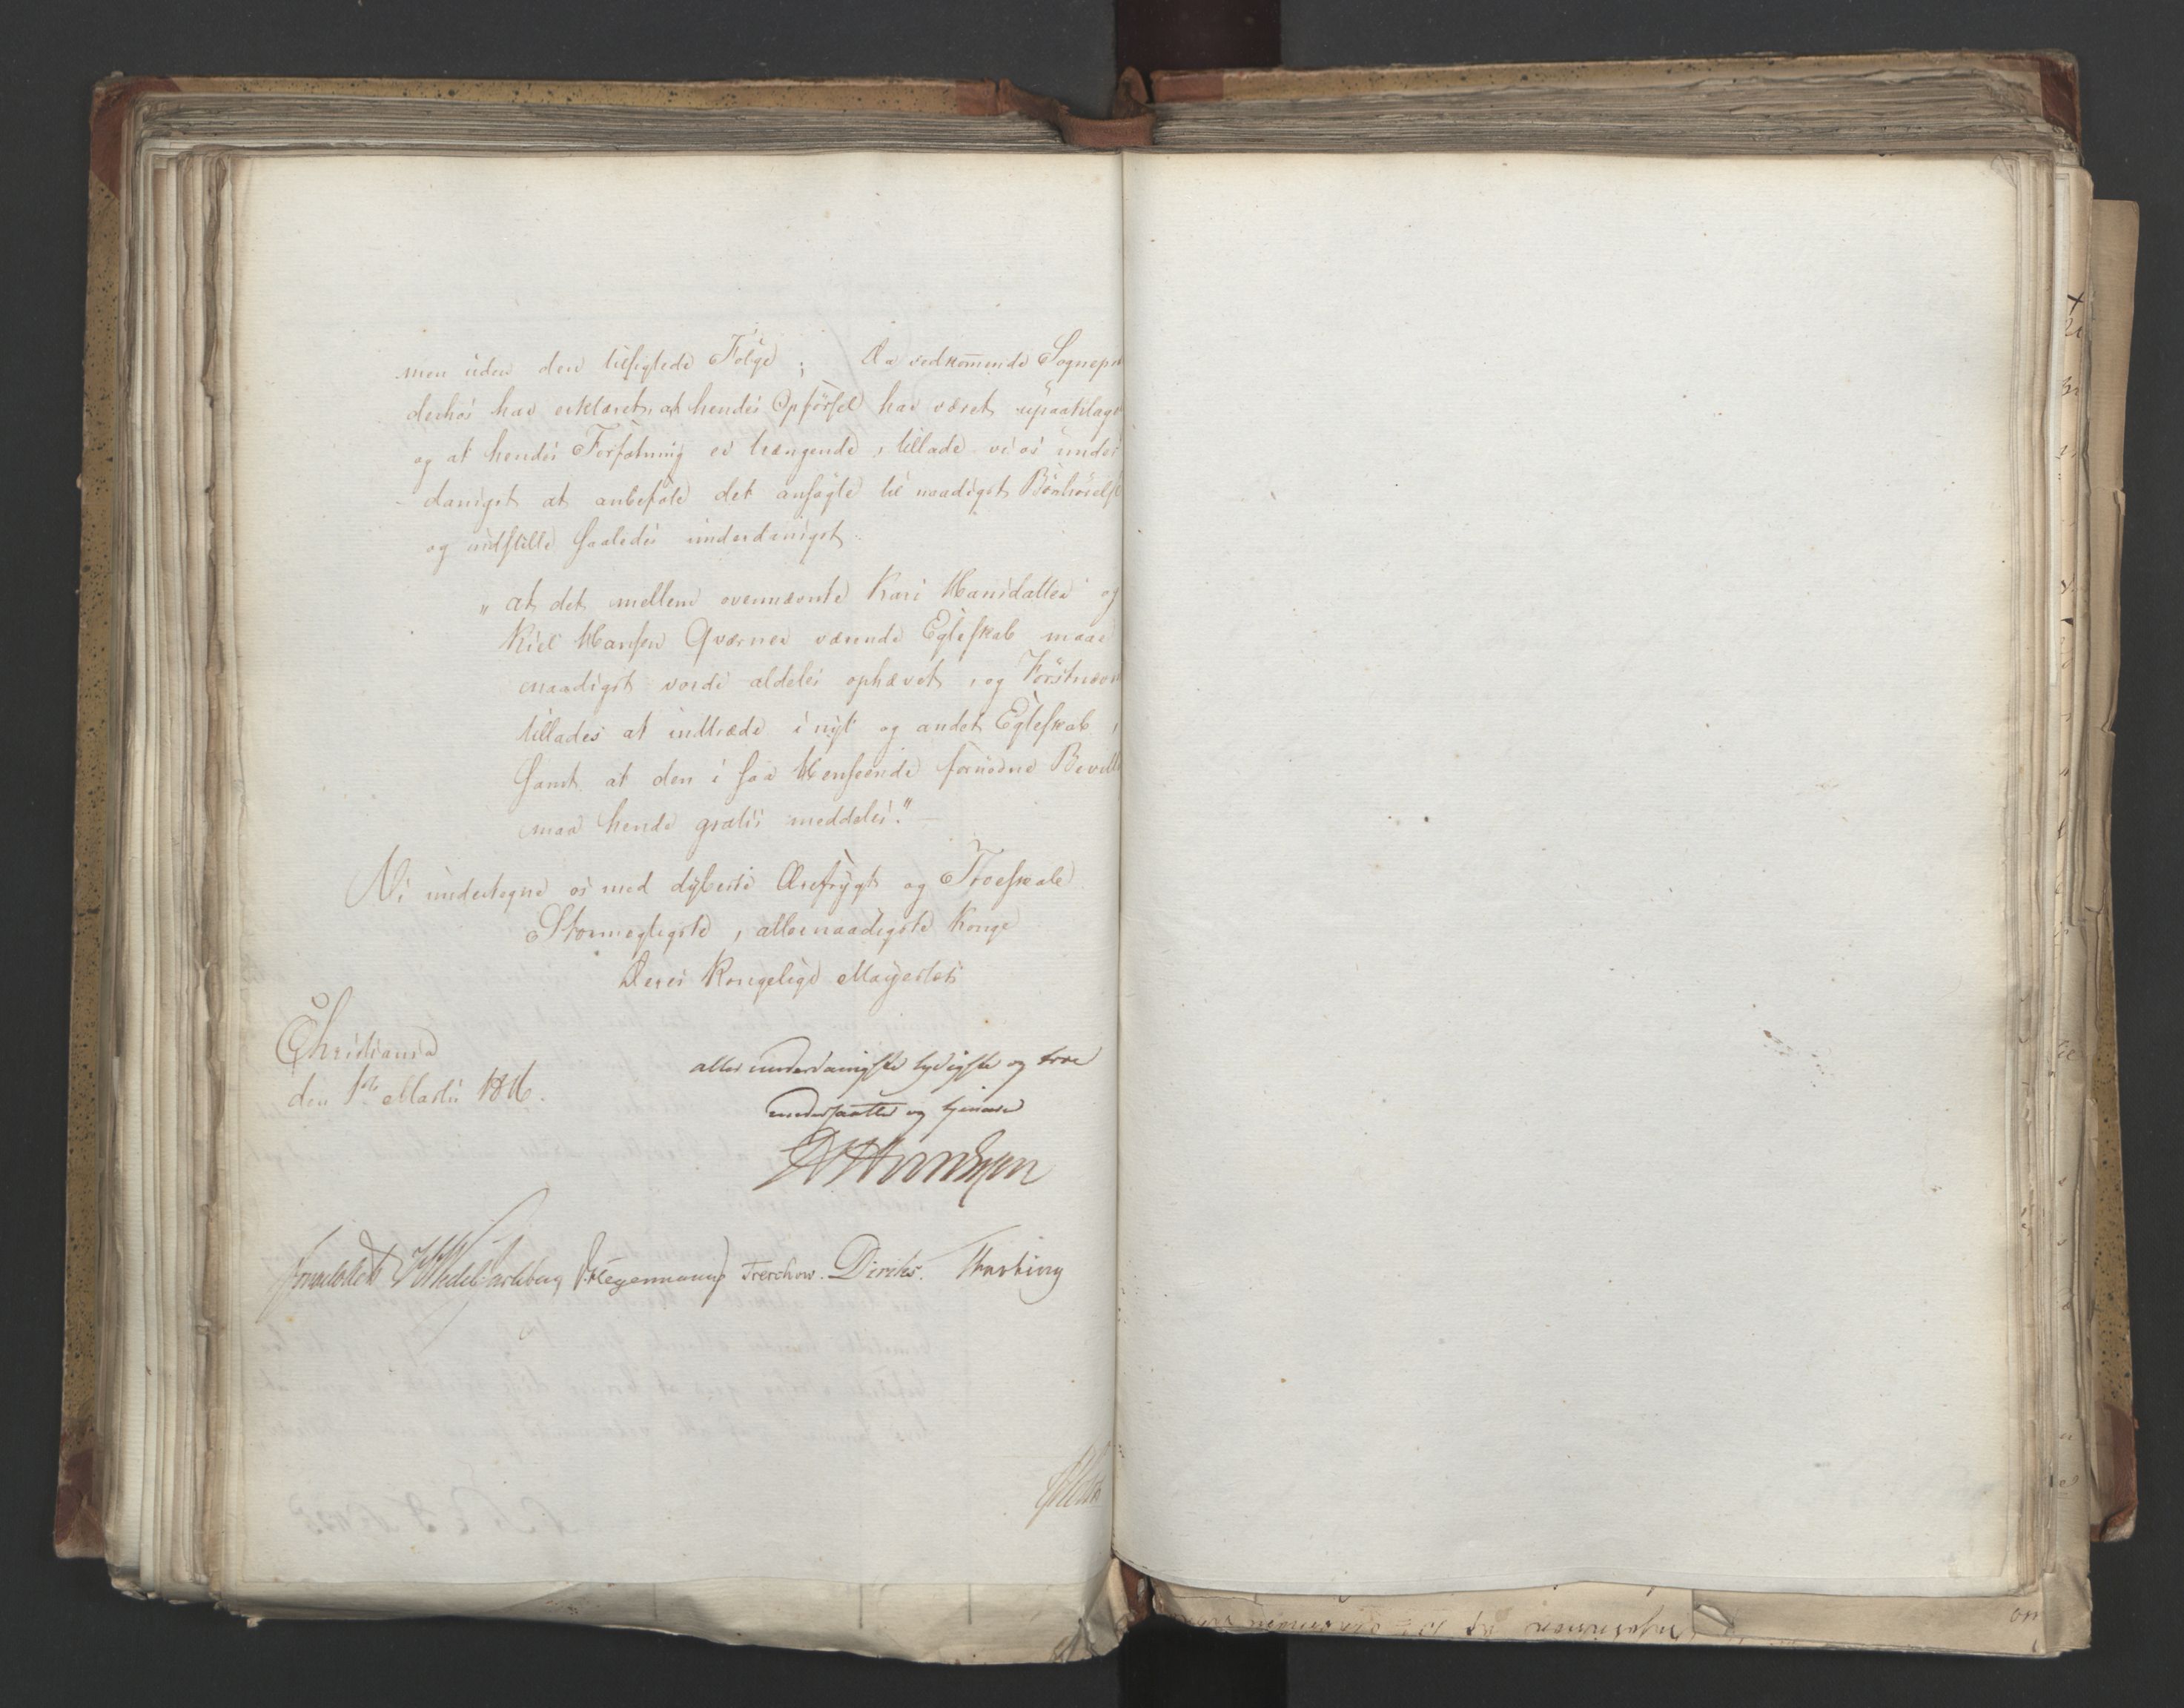 men uden den tilsigtede Følge; Da vedkommende Sognepr
derhos har erklæret, at hendes Opførsel har været upaaklage
og at hendes Forfatning er trængende, tillade vi os under
danigst at anbefale det ansøgte til naadigst Bønhørelse
og indstille saaledes underdanigst.
„at det mellem ovennævnte Kari Hansdatter og
Kiel Hansen Qværner værende Egteskab maae
naadigst vorde aldeles ophævet, og Førstnævn
tillades at indtræde i nyt og andet Egteskab,
samt at den i saa Henseende fornødne Bevill
maa hende gratis meddeles."
Vi undertegne os med dybeste Ærefrygt og Troeskab
Stormægtigste, allernaadigste Konge
Deres Kongelige Majestæts
Christiania
den 1ste Martii 1816.
allerunderdanigste lydigste og troe
undersaatter og tjenere
Sommerhielm Wedel Jarlsberg D. Hegermann Treschow. Diriks. Motzfeldt